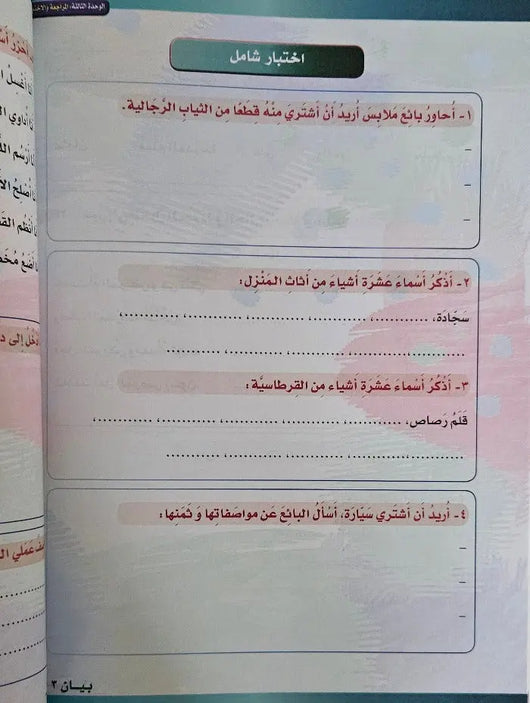 الوحدة الثالثة، المراجعة
اختبار شامل
١- أُحاوِرُ بائِعَ مَلابِسَ أُريدُ أَنْ أَشْتَرِيَ مِنْهُ قِطَعًا مِن الثياب الرَّجَالية.
-
-
-
٢- أَذْكُرُ أَسْماءَ عَشَرَةِ أَشياءَ مِن أَثاثِ المَنْزِل:
سجّادَة، ...........، ...........، ...........، ...........، ...........،
...........، ...........، ...........، ...........
٣- أَذْكُرُ أَسْماءَ عَشَرَةِ أَشياء مِن القِرطاسيَّة:
قَلَمُ رَصاص، ...........، ...........، ...........، ...........، ...........،
...........، ...........، ...........، ...........
٤- أُريدُ أَن أَشتَري سَيّارَة، أَسْأَلُ البائِعَ عَن مواصَفاتِها وَ ثَمَنِها:
-
-
-
بيـان ٣